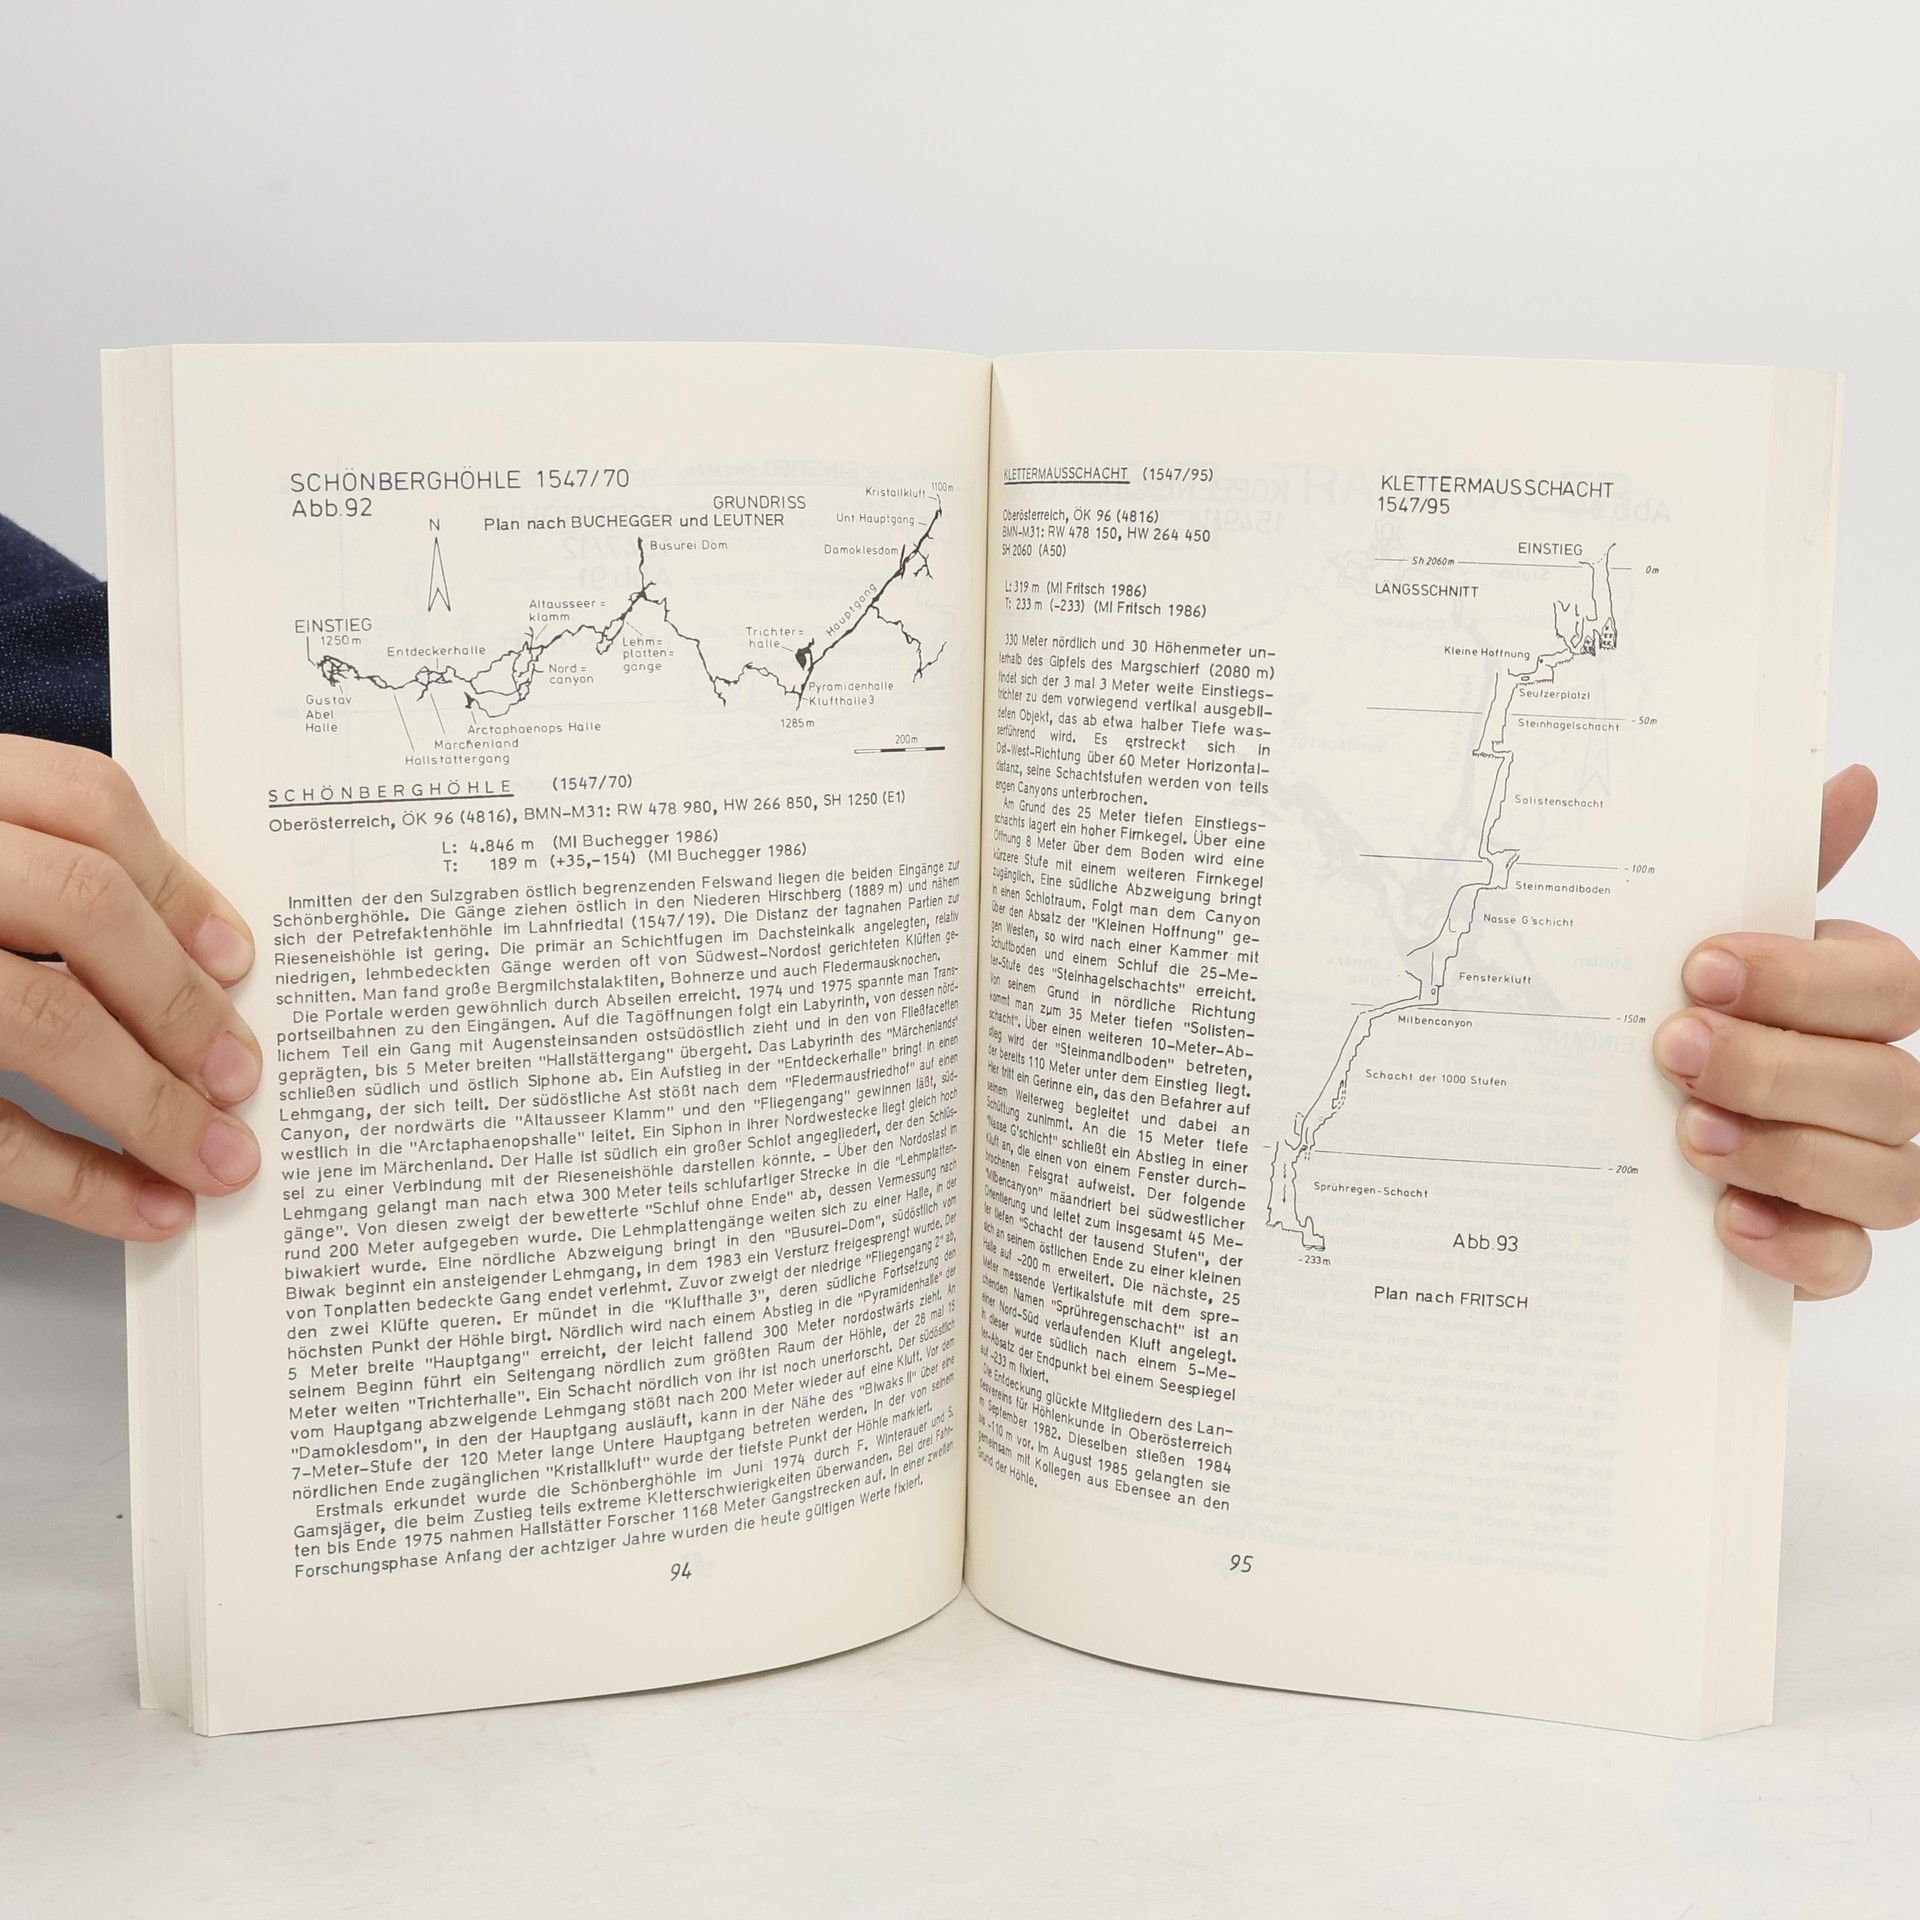 SCHÖNBERGHÖHLE 1547/70
Abb.92
GRUNDRISS
Plan nach BUCHEGGER und LEUTNER
N
Kristallkluft
1100m
Unt.Hauptgang
Damoklesdom
Busurei Dom
Altausseer=
klamm
Hauptgang
EINSTIEG
1250m
Entdeckerhalle
Lehm=
platten=
gänge
Trichter=
halle
Nord=
canyon
Gustav
Abel
Halle
Pyramidenhalle
Klufthalle3
1285m
Arctaphaenops Halle
Märchenland
Hallstättergang
200m
SCHÖNBERGHÖHLE (1547/70)
Oberösterreich, ÖK 96 (4816), BMN-M31: RW 478 980, HW 266 850, SH 1250 (E1)
L: 4.846 m (MI Buchegger 1986)
T: 189 m (+35,-154) (MI Buchegger 1986)
Inmitten der den Sulzgraben östlich begrenzenden Felswand liegen die beiden Eingänge zur
Schönberghöhle. Die Gänge ziehen östlich in den Niederen Hirschberg (1889 m) und nähern
sich der Petrefaktenhöhle im Lahnfriedtal (1547/19). Die Distanz der tagnahen Partien zur
Rieseneishöhle ist gering. Die primär an Schichtfugen im Dachsteinkalk angelegten, relativ
niedrigen, lehmbedeckten Gänge werden oft von Südwest-Nordost gerichteten Klüften ge-
schnitten. Man fand große Bergmilchstalaktiten, Bohnerze und auch Fledermausknochen.
Die Portale werden gewöhnlich durch Abseilen erreicht. 1974 und 1975 spannte man Trans-
portseilbahnen zu den Eingängen. Auf die Tagöffnungen folgt ein Labyrinth, von dessen nörd-
lichem Teil ein Gang mit Augensteinsanden ostsüdöstlich zieht und in den von Fließfacetten
geprägten, bis 5 Meter breiten "Hallstättergang" übergeht. Das Labyrinth des "Märchenlands"
schließen südlich und östlich Siphone ab. Ein Aufstieg in der "Entdeckerhalle" bringt in einen
Lehmgang, der sich teilt. Der südöstliche Ast stößt nach dem "Fledermausfriedhof" auf einen
Canyon, der nordwärts die "Altausseer Klamm" und den "Fliegengang" gewinnen läßt, süd-
westlich in die "Arctaphaenopshalle" leitet. Ein Siphon in ihrer Nordwestecke liegt gleich hoch
wie jene im Märchenland. Der Halle ist südlich ein großer Schlot angegliedert, der den Schlüs-
sel zu einer Verbindung mit der Rieseneishöhle darstellen könnte. - Über den Nordostast im
Lehmgang gelangt man nach etwa 300 Meter teils schlufartiger Strecke in die "Lehmplatten-
gänge". Von diesen zweigt der bewetterte "Schluf ohne Ende" ab, dessen Vermessung nach
rund 200 Meter aufgegeben wurde. Die Lehmplattengänge weiten sich zu einer Halle, in der
biwakiert wurde. Eine nördliche Abzweigung bringt in den "Busurei-Dom", südöstlich vom
Biwak beginnt ein ansteigender Lehmgang, in dem 1983 ein Versturz freigesprengt wurde. Der
von Tonplatten bedeckte Gang endet verlehmt. Zuvor zweigt der niedrige "Fliegengang 2" ab,
den zwei Klüfte queren. Er mündet in die "Klufthalle 3", deren südliche Fortsetzung den
höchsten Punkt der Höhle birgt. Nördlich wird nach einem Abstieg in die "Pyramidenhalle" der
5 Meter breite "Hauptgang" erreicht, der leicht fallend 300 Meter nordostwärts zieht. An
seinem Beginn führt ein Seitengang nördlich zum größten Raum der Höhle, der 28 mal 15
Meter weiten "Trichterhalle". Ein Schacht nördlich von ihr ist noch unerforscht. Der südöstlich
vom Hauptgang abzweigende Lehmgang stößt nach 200 Meter wieder auf eine Kluft. Vor dem
"Damoklesdom", in den der Hauptgang ausläuft, kann in der Nähe des "Biwaks II" über eine
7-Meter-Stufe der 120 Meter lange Untere Hauptgang betreten werden. In der von seinem
nördlichen Ende zugänglichen "Kristallkluft" wurde der tiefste Punkt der Höhle markiert.
Erstmals erkundet wurde die Schönberghöhle im Juni 1974 durch F. Winterauer und S.
Gamsjäger, die beim Zustieg teils extreme Kletterschwierigkeiten überwanden. Bei drei Fahr-
ten bis Ende 1975 nahmen Hallstätter Forscher 1168 Meter Gangstrecken auf. In einer zweiten
Forschungsphase Anfang der achtziger Jahre wurden die heute gültigen Werte fixiert.
94
KLETTERMAUSSCHACHT (1547/95)
Oberösterreich, ÖK 96 (4816)
BMN-M31: RW 478 150, HW 264 450
SH 2060 (A50)
L: 319 m (MI Fritsch 1986)
T: 233 m (-233) (MI Fritsch 1986)
330 Meter nördlich und 30 Höhenmeter un-
terhalb des Gipfels des Margschierf (2080 m)
findet sich der 3 mal 3 Meter weite Einstiegs-
trichter zu dem vorwiegend vertikal ausgebil-
deten Objekt, das ab etwa halber Tiefe was-
serführend wird. Es erstreckt sich in
Ost-West-Richtung über 60 Meter Horizontal-
distanz, seine Schachtstufen werden von teils
engen Canyons unterbrochen.
Am Grund des 25 Meter tiefen Einstiegs-
schachts lagert ein hoher Firnkegel. Über eine
Öffnung 8 Meter über dem Boden wird eine
kürzere Stufe mit einem weiteren Firnkegel
zugänglich. Eine südliche Abzweigung bringt
in einen Schlotraum. Folgt man dem Canyon
über den Absatz der "Kleinen Hoffnung" ge-
gen Westen, so wird nach einer Kammer mit
Schuttboden und einem Schluf die 25-Me-
ter-Stufe des "Steinhagelschachts" erreicht.
Von seinem Grund in nördliche Richtung
kommt man zum 35 Meter tiefen "Solisten-
schacht". Über einen weiteren 10-Meter-Ab-
stieg wird der "Steinmandlboden" betreten,
der bereits 110 Meter unter dem Einstieg liegt.
Hier tritt ein Gerinne ein, das den Befahrer auf
seinem Weiterweg begleitet und dabei an
Schüttung zunimmt. An die 15 Meter tiefe
"Nasse G'schicht" schließt ein Abstieg in einer
Kluft an, die einen von einem Fenster durch-
brochenen Felsgrat aufweist. Der folgende
"Milbencanyon" mäandriert bei südwestlicher
Orientierung und leitet zum insgesamt 45 Me-
ter tiefen "Schacht der tausend Stufen", der
sich an seinem östlichen Ende zu einer kleinen
Halle auf -200 m erweitert. Die nächste, 25
Meter messende Vertikalstufe mit dem spre-
chenden Namen "Sprühregenschacht" ist an
einer Nord-Süd verlaufenden Kluft angelegt.
In dieser wurde südlich nach einem 5-Me-
ter-Absatz der Endpunkt bei einem Seespiegel
auf -233 m fixiert.
Die Entdeckung glückte Mitgliedern des Lan-
desvereins für Höhlenkunde in Oberösterreich
im September 1982. Dieselben stießen 1984
bis -110 m vor. Im August 1985 gelangten sie
gemeinsam mit Kollegen aus Ebensee an den
Grund der Höhle.
95
KLETTERMAUSSCHACHT
1547/95
EINSTIEG
Sh 2060m
0m
LÄNGSSCHNITT
Kleine Hoffnung
Seufzerplatzl
Steinhagelschacht
-50m
Solistenschacht
-100m
Steinmandlboden
Nasse G'schicht
Fensterkluft
-150m
Milbencanyon
Schacht der 1000 Stufen
-200m
Sprühregen-Schacht
-233m
Abb.93
Plan nach FRITSCH